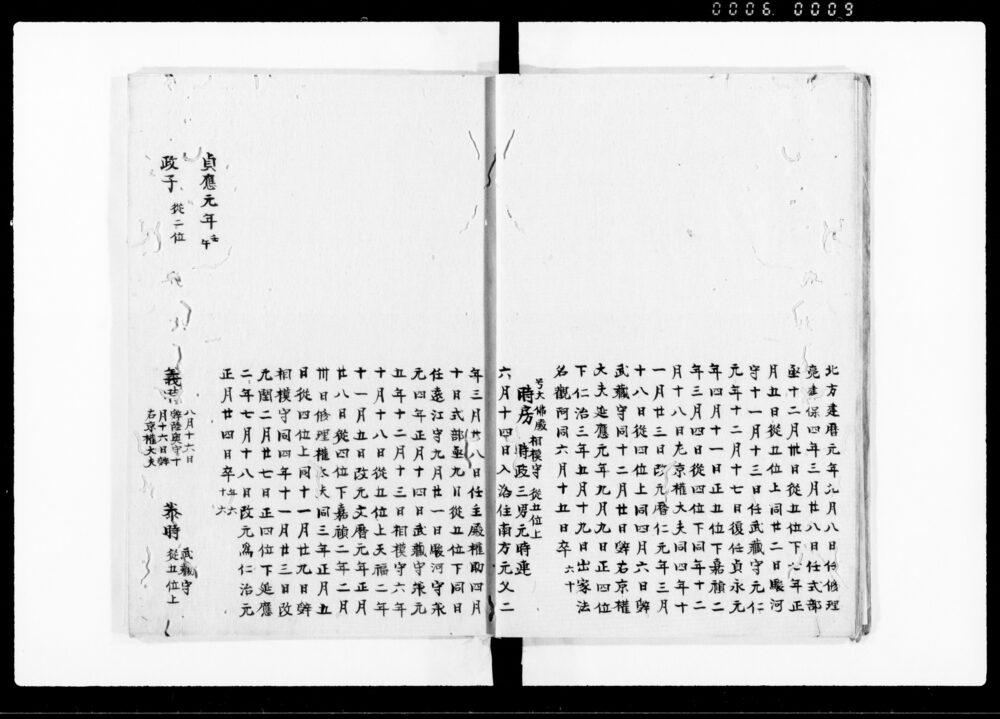 0006 0009
北方建暦元年九月八日任修理
亮建保四年三月廿八日任式部
丞十二月卅日從五位下 年正
月五日從五位上同廿二日駿河
守十一月十三日任武藏守元仁
元年十二月十七日復任貞永元
年四月十一日正五位下嘉禎二
年三月四日從四位下同年十二
月十八日左京權大夫同四年十
一月廿三日改元曆仁元年三月
十八日從四位上同四月六日辭
武藏守同十二月廿日辭右京權
大夫延應元年九月九日正四位
下仁治三年五月十九日出家法
名觀阿同六月十五日卒 六十
号大佛殿 相模守 從五位上
時房 時政三男元時連
六月十四日入洛住南方元久二
年三月廿八日任主殿權助四月
十日式部丞九日從五位下同日
任遠江守九月廿一日駿河守承
元四年正月十四日武藏守承元
五年十二月十三日相模守六年
十月十八日從五位上天福二年
十一月五日改元文曆元年正月
廿八日從四位下嘉禎二年二月
卅日修理權大夫同三年正月五
日從四位上同十一月廿九日辭
相模守同四年十一月廿三日改
元閏二月廿七日正四位下延應
二年七月十八日改元爲仁治元
正月廿四日卒 年六十六
貞應元年 壬午
政子 從二位
義 八月十六日
辭陸奥守十
月十六日辭
右京權大夫
泰時 武藏守
從五位上